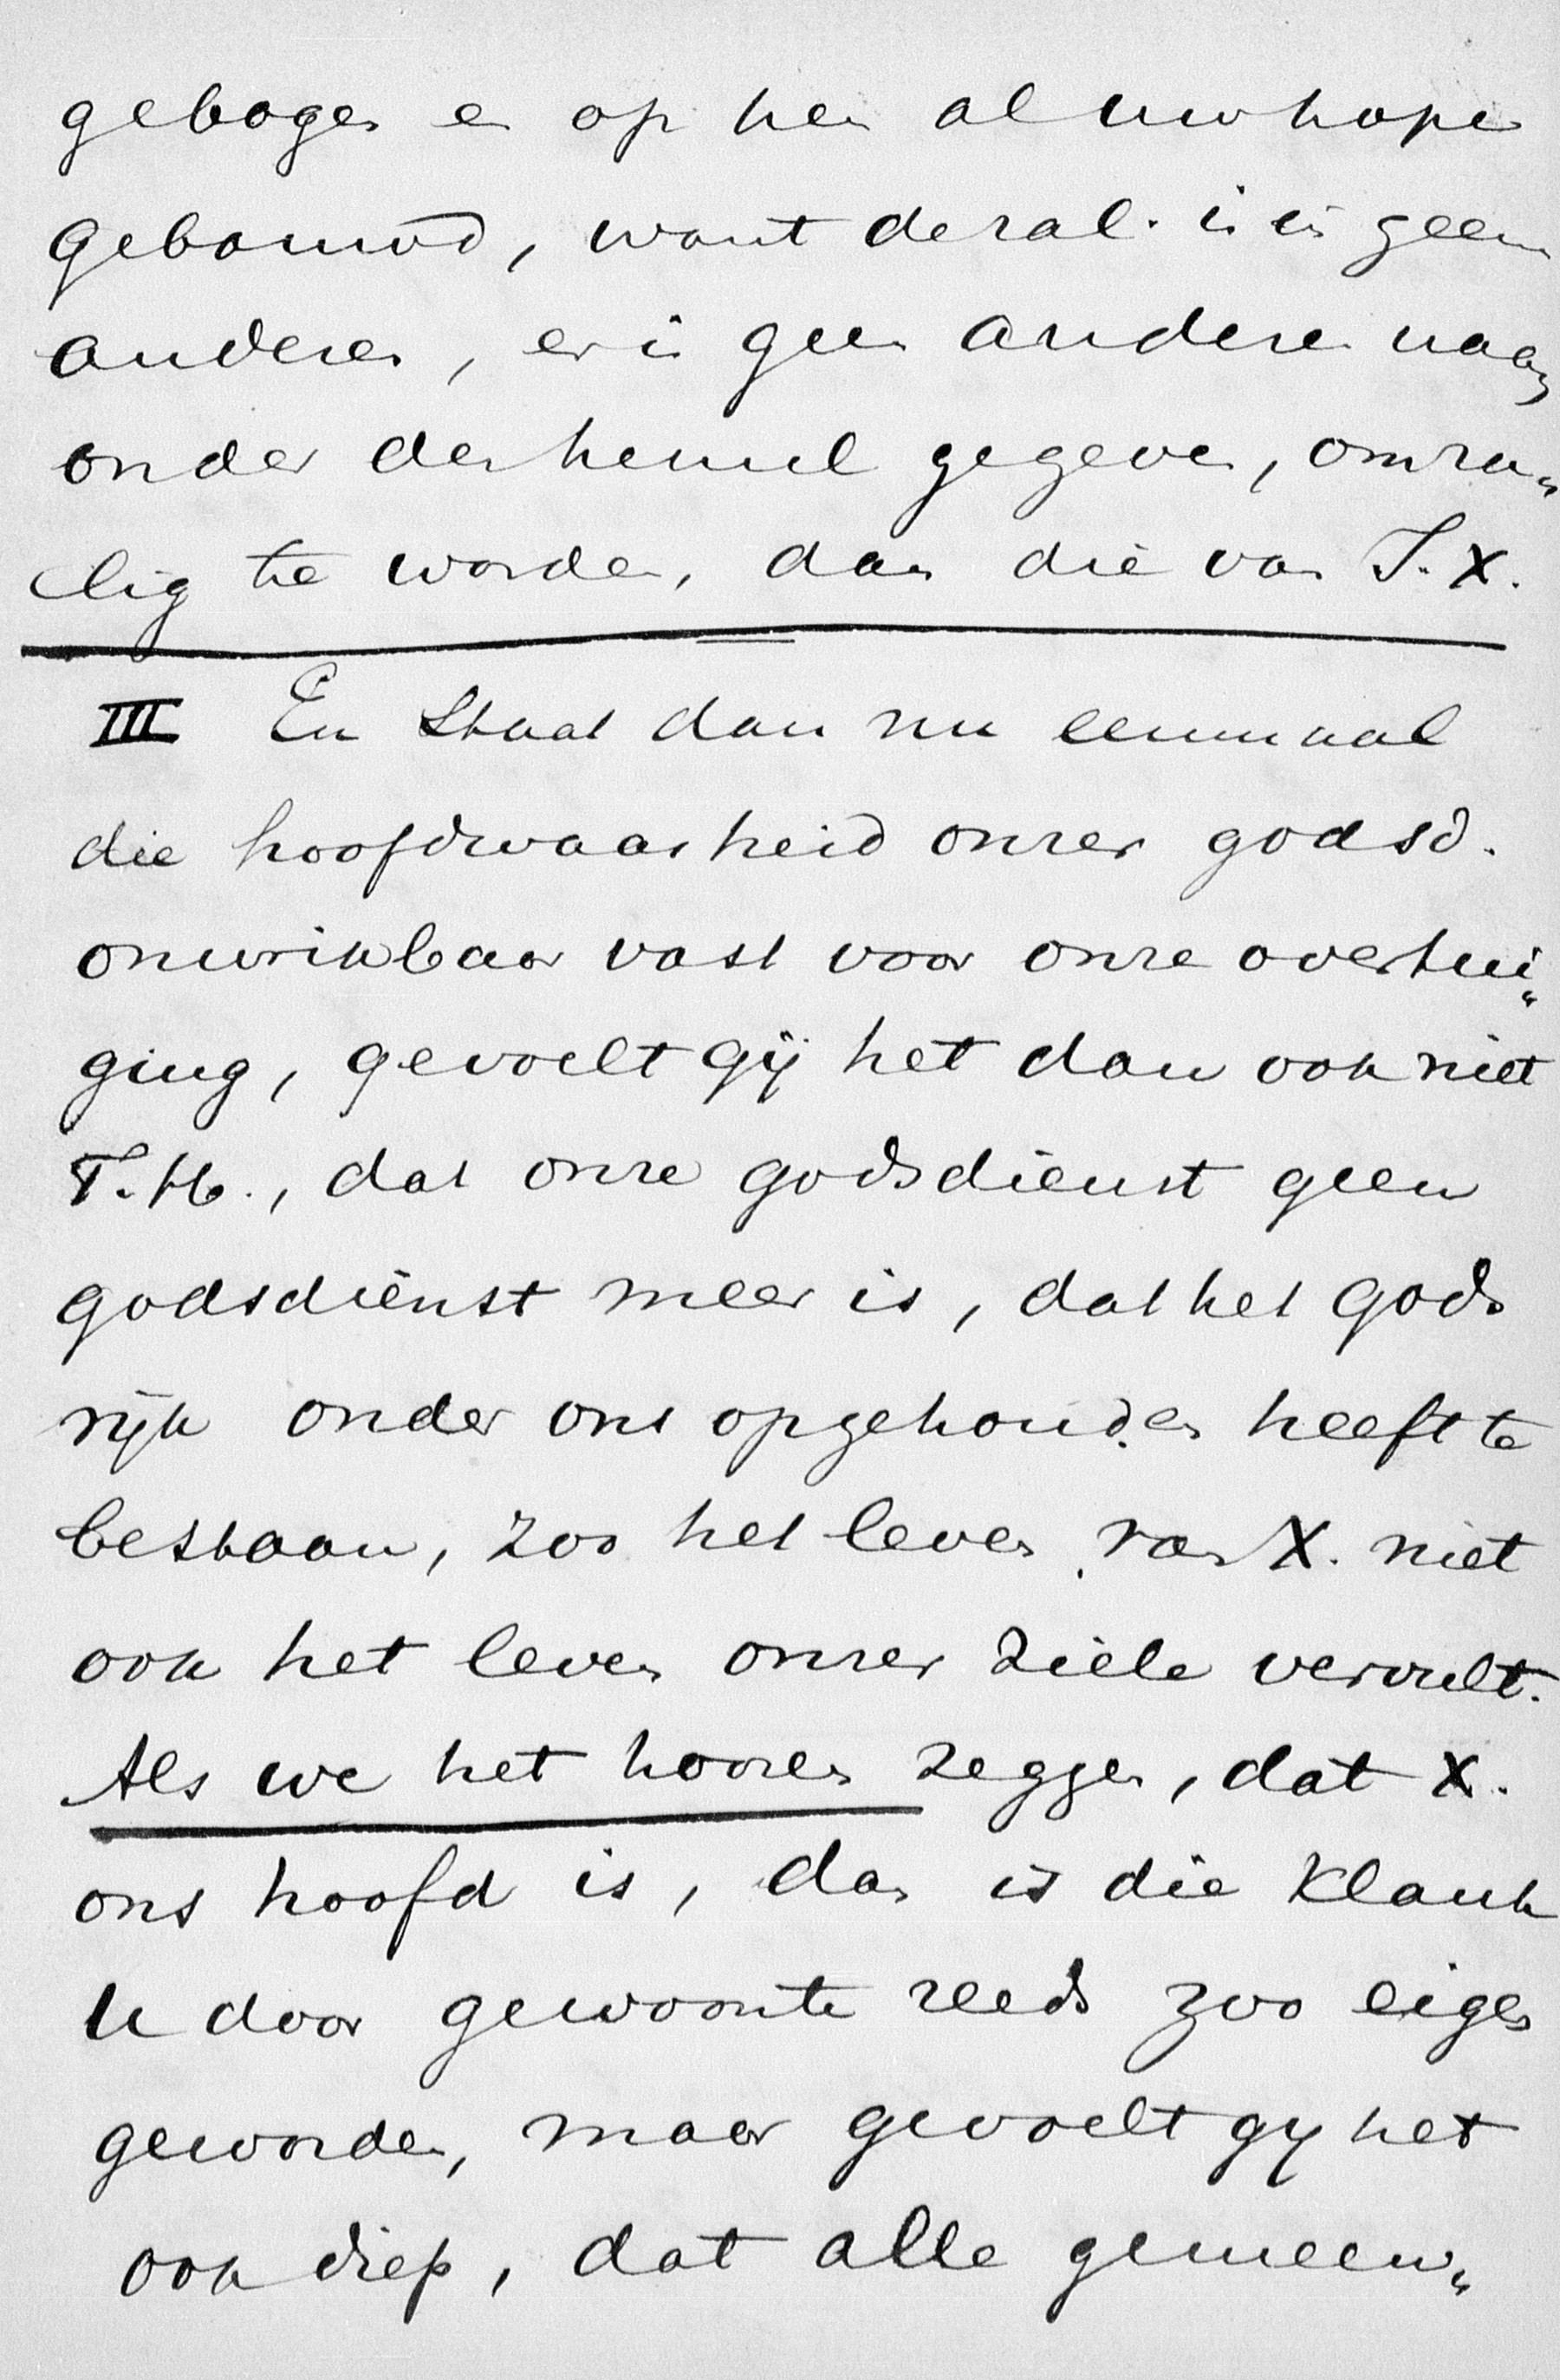 gebogen en op hem al uw hope
gebouwd, want de zal. is in geen
anderen, er is geen anderen naam
onder den hemel gegeven, om za„
lig te worden, dan die van J. X.
III En staat dan nu eenmaal
die hoofdwaarheid onzer godsd.
onwrikbaar vast voor onze overtui„
ging, gevoelt gij het dan ook niet
T. H., dat onze godsdienst geen
godsdienst meer is, dat het Gods
rijk onder ons opgehouden heeft te
bestaan, zoo het leven van X. niet
ook het leven onzer ziele vervult.
Als we het hooren zeggen, dat X.
ons hoofd is, dan is die klank
u door gewoonte reeds zoo eigen
geworden, maar gevoelt gij het
ook diep, dat alle gemeen„